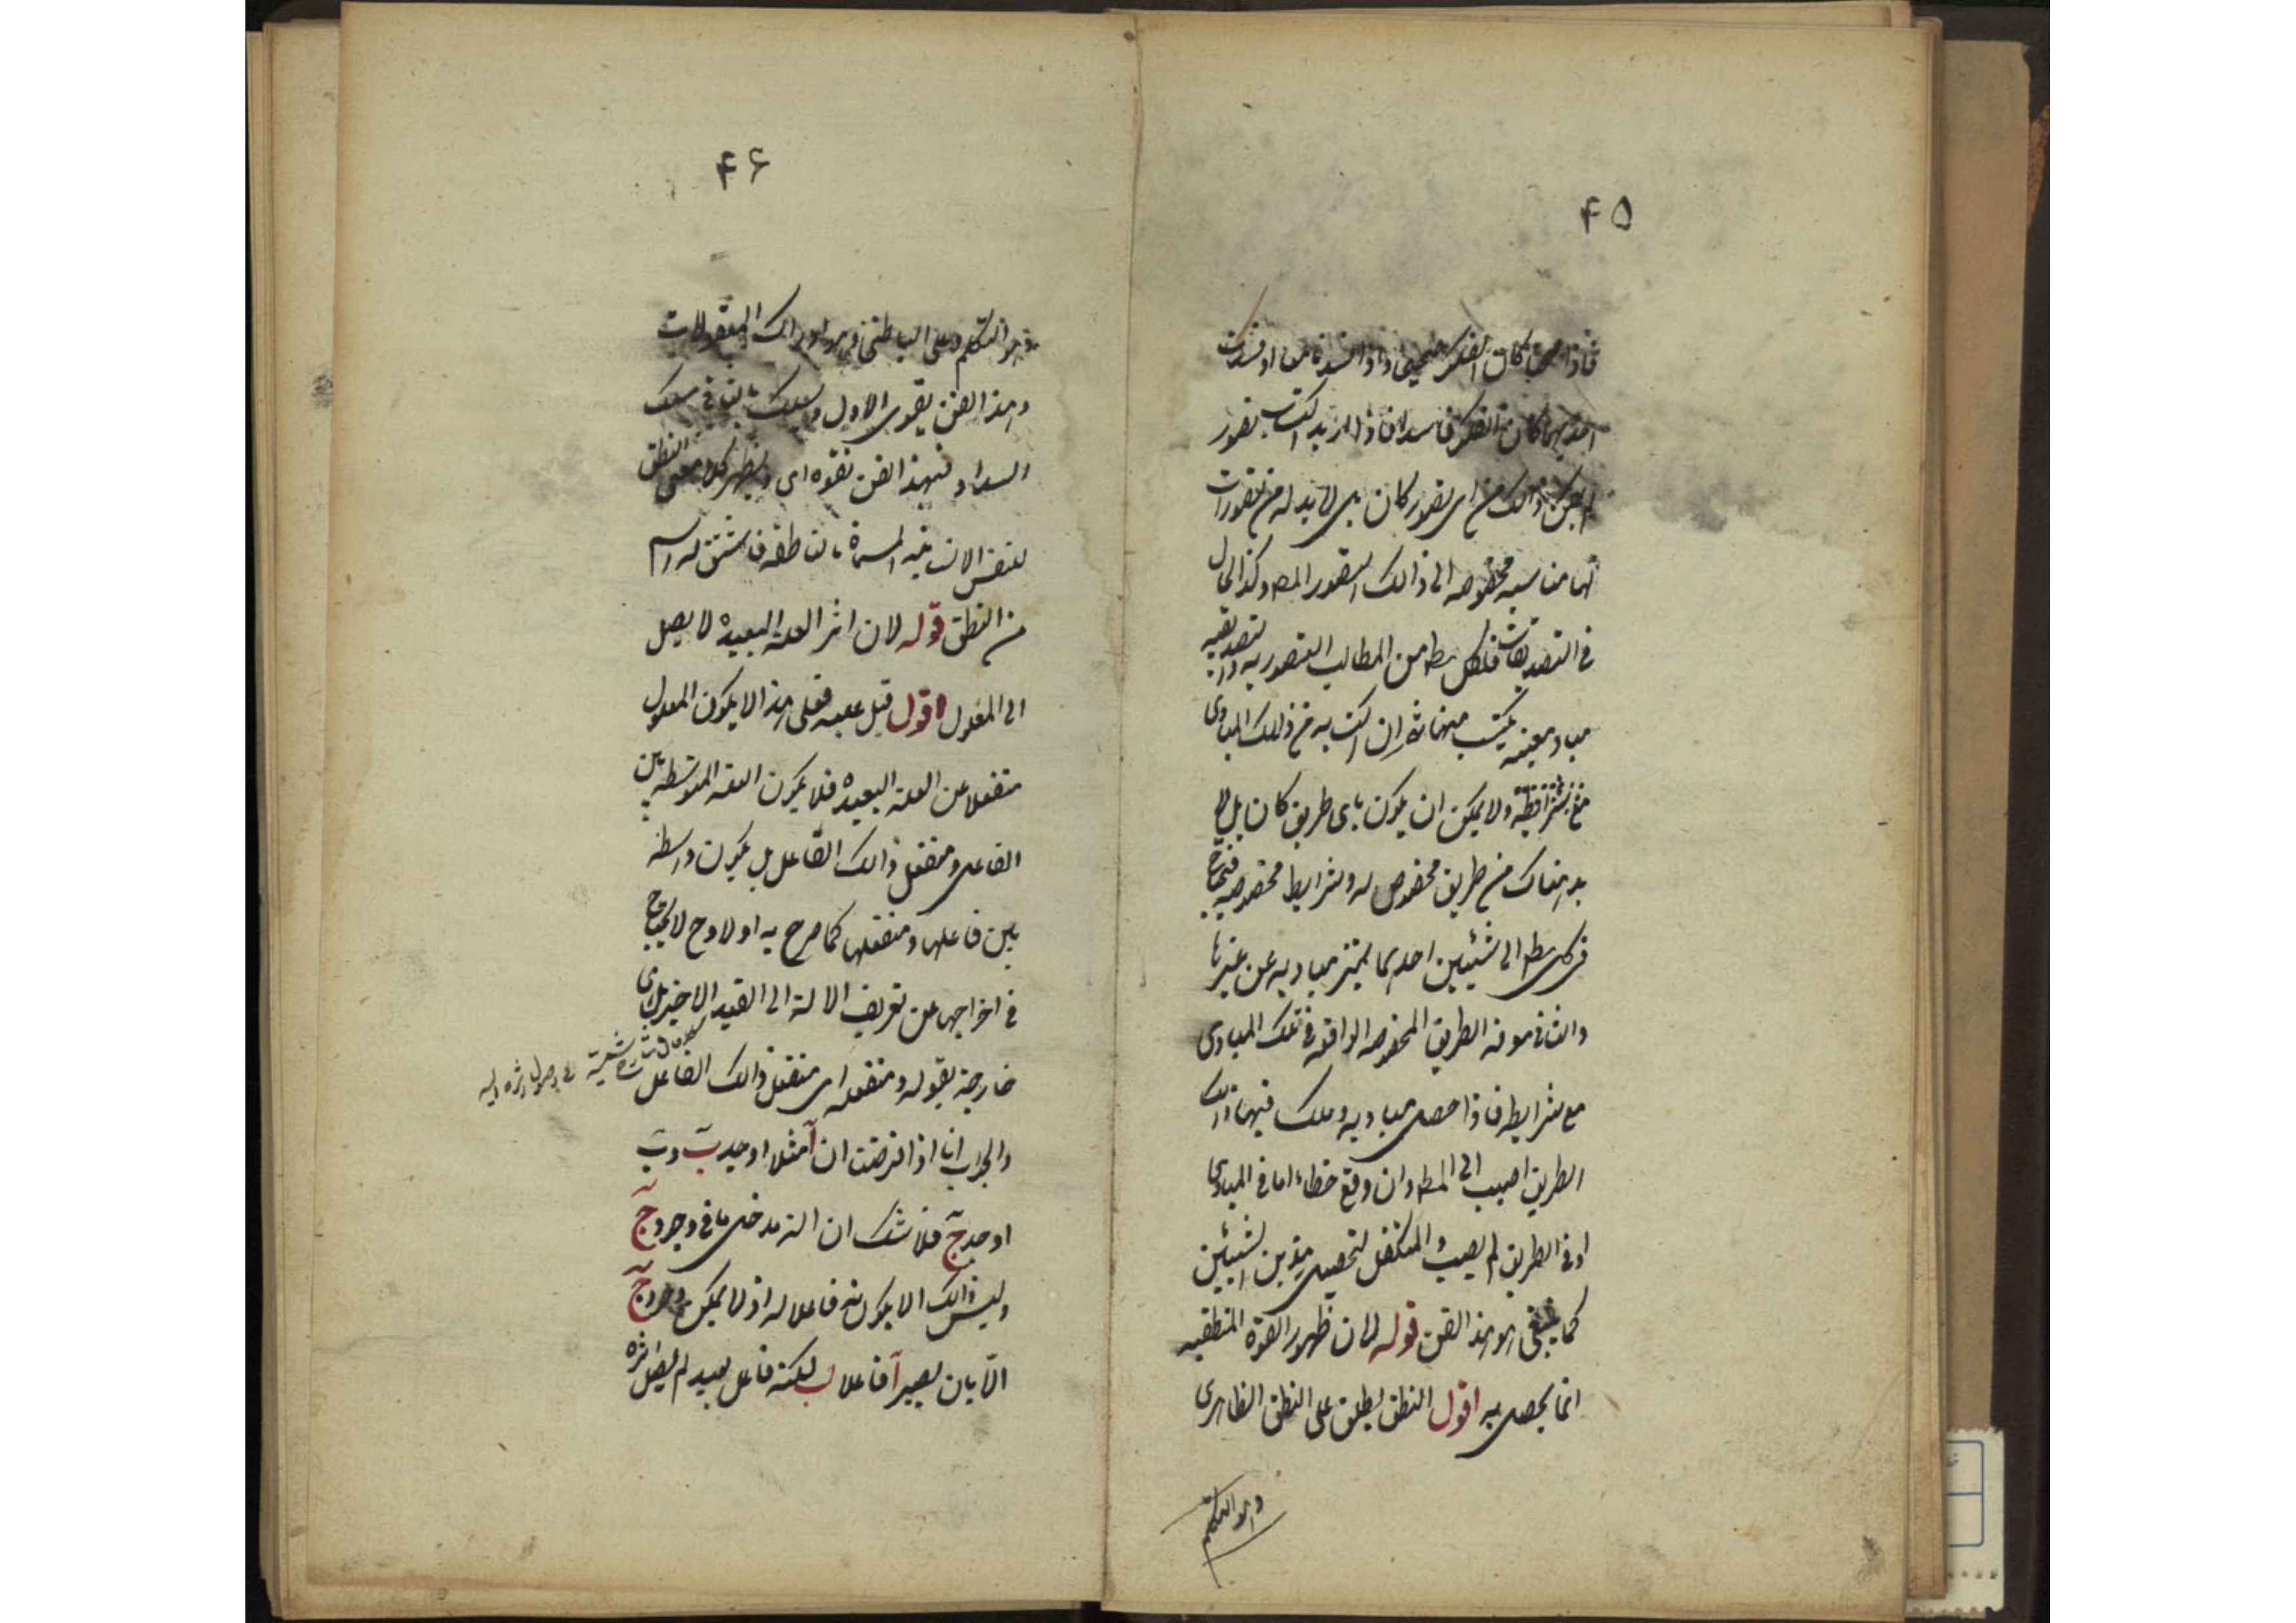 ۴۵
فاذا صحتا كان الفكر صحيحا واذا فسدتا معا او فسدت
احديهما كان الفكر فاسدا فاذا اريد اكتساب تصور
لم يمكن ذالك من اى تصور كان بل لا بد له من تصورات
لها مناسبه مخصوصه الى ذالك التصور المط وكذا الحال
فى التصديقات فلكل مط من المطالب التصوريه والتصديقيه
مباد معينه يكتسب منها ثم ان اكتسابه من ذلك المبادى
ولا يمكن ان يكون باى طريق كان بل لا
بد هناك من طريق مخصوص له وشرايط مخصوصه فيحتاج
فى كل مط الى شيئين احدهما تميز مباديه عن غيرها
والثانى معرفه الطريق المخصوصه الواقعه فى تلك المبادى
مع شرايطه فاذا حصل مباديه وسلك فيها ذالك
الطريق اصيب الى المط وان وقع خطاء اما فى المبادى
او فى الطريق لم يصب والمتكفل لتحصيل هذين الشيئين
كما ينبغى هو هذا الفن قوله لان ظهور القوة النطقيه
انما يحصل به اقول النطق يطلق على النطق الظاهرى
وهو التكلم
۴۶
وهو التكلم وعلى الباطنى وهو ادراك المعقولات
وهذا الفن يقوى الاول ويسلك بالثانى مسلك
السداد فبهذا الفن يتقوى اى ويظهر كلا معنى النطق
للنفس الانسانيه المسماة بالناطقه فاشتق له اسم
من النطق قوله لان اثر العله البعيده لا يصل
الى المعلول اقول قيل عليه فعلى هذا لا يكون المعلول
منفعلا عن العله البعيده فلا يكون العله المتوسطه بين
الفاعل ومنفعل ذالك الفاعل بل يكون واسطه
بين فاعلها ومنفعلها كما صرح به اولا وح لا يحتاج
فى اخراجها عن تعريف الالة الى القيد الاخير بل هى
خارجة بقوله ومنفعله اى منفعل ذالك الفاعل
فى وصول اثره اليه
والجواب انا اذا فرضنا ان آ مثلا اوجد ب و ب
اوجد ج فلا شك ان ا له مدخل ما فى وجود ج
وليس ذالك الا لكونه فاعلا له اذ لا يمكن وجود ج
الا بان يصير آ فاعلا ل ب لكنه فاعل بعيد لم يصل اثره